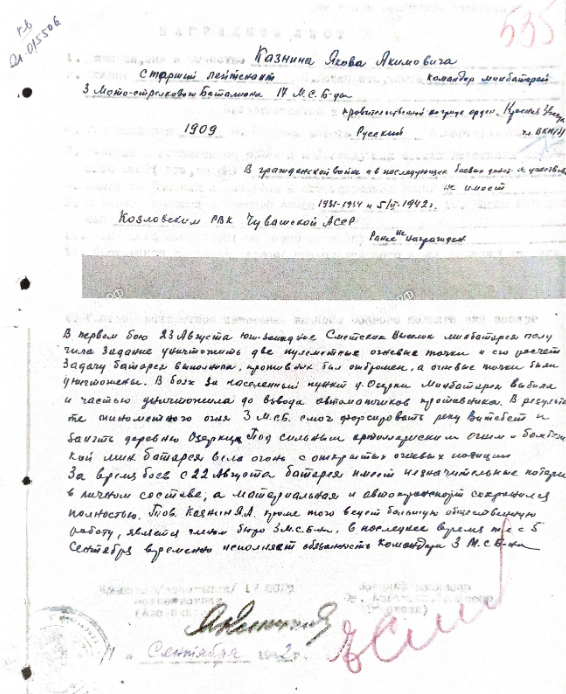 535
Казнина Якова Акимовича
старший лейтенант командир минбатареи
3 Мото-стрелкового Баталиона 17 М.С.Б-ды
правительственной награде орден „Красная Звезда
1909 Русский чл. ВКП/б/
В гражданской войне и в последующих боевых действ. не участвовал
не имеет
1931-1934 и 1942 г.
Козловским РВК Чувашской АССР
Ранее не награжден
В первом бою 23 Августа юго-западнее Сметские Выселки минбатарея полу
чила задание уничтожить две пулеметные огневые точки и его расчет
Задачу батарея выполнила, противник был отброшен, а огневые точки были
уничтожены. В боях за населенный пункт д. Минбатарея выбила
и частью уничтожила до взвода автоматчиков противника. В результа
те минометного огня 3 М.С.Б. смог форсировать реку Вытебеть и
занять деревню Под сильным артиллериским огнем и бомбеж
кой мин. батарея вела огонь с открытых огневых позиций
За время боев с 22 Августа батарея имеет незначительные потери
в личном составе, а материальная и автотранспорт сохранился
полностью. Тов. Казнин Я.А. кроме того ведет большую общественную
работу, является членом бюро 3 М.С.Б-на, в последнее время же с 5
Сентября временно исполняет обязаность Командира 3 М.С.Б-на
Сентября 1942 г.